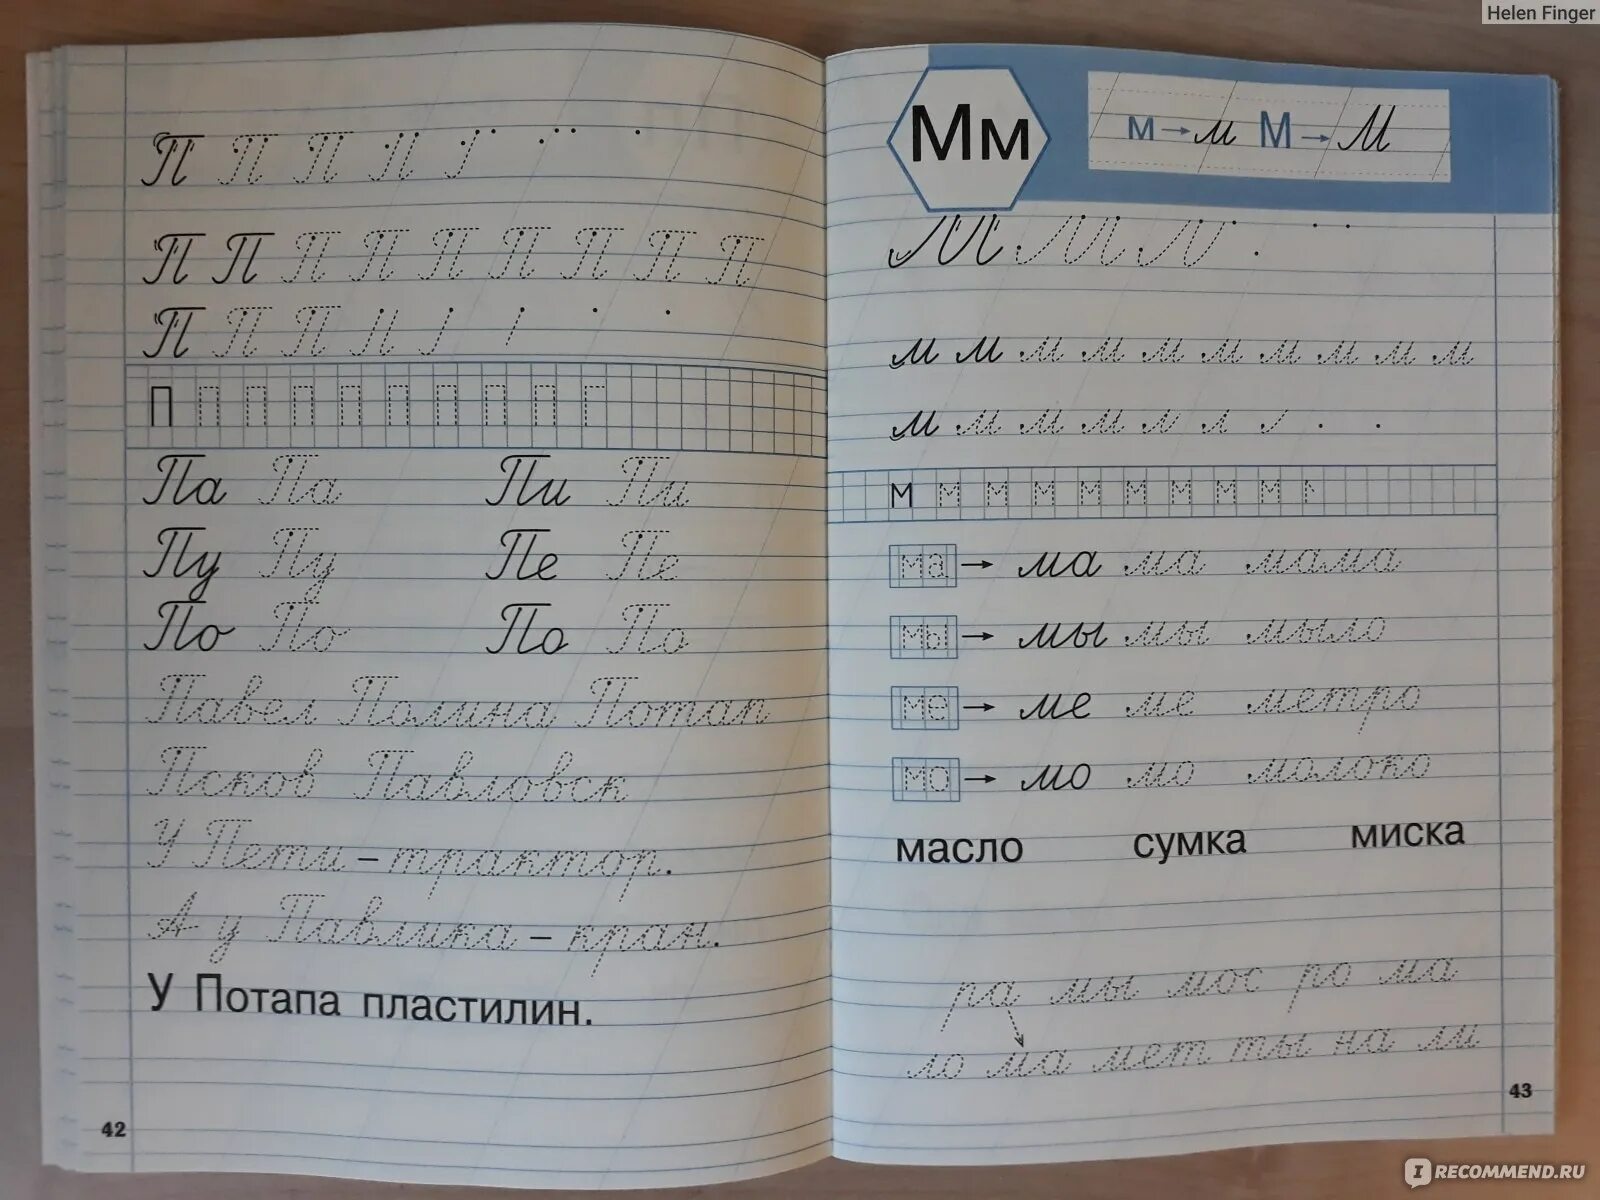 Helen Finger
П П П П
П П П П П П П П П
П П П П
П П П П П П П П П
Па Па Пи Пи
Пу Пу Пе Пе
По По По По
Павел Полина Потап
Псков Павловск
У Пети – трактор.
А у Павлика – кран.
У Потапа пластилин.
42
Мм
м → м М → М
М М М
м м м м м м м м м м
м м м м м л
м м м м м м м м м
ма → ма ма мама
мы → мы мы мыло
ме → ме ме метро
мо → мо мо молоко
масло сумка миска
ра мы мос ро ма
ло ма мет ты на ли
43
IRECOMMEND.RU